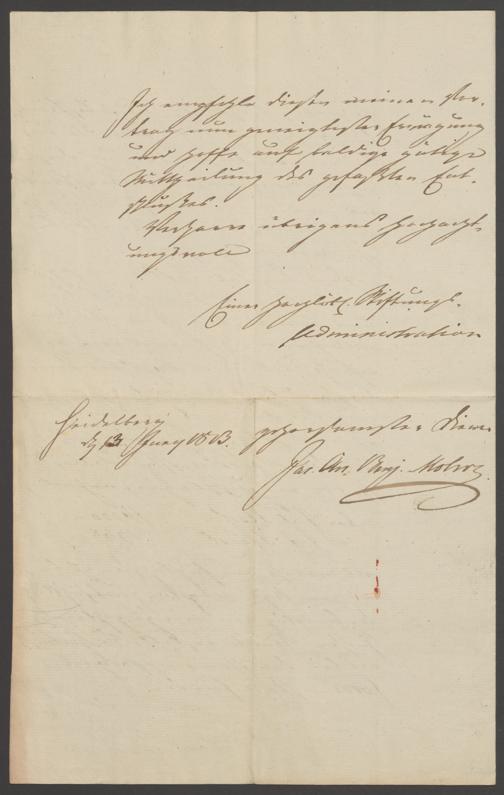 Ich empfehle diesen meinen Vor-
trag nun geneigtester Erwägung
und hoffe auf baldige gütige
Mittheilung des gefaßten Ent-
schlußes.
Verharre übrigens hochacht-
ungsvoll
Einer hochlöbl. Stiftungs-
Administration
Heidelberg
13 1813.
gehorsamster Diener
Jac.